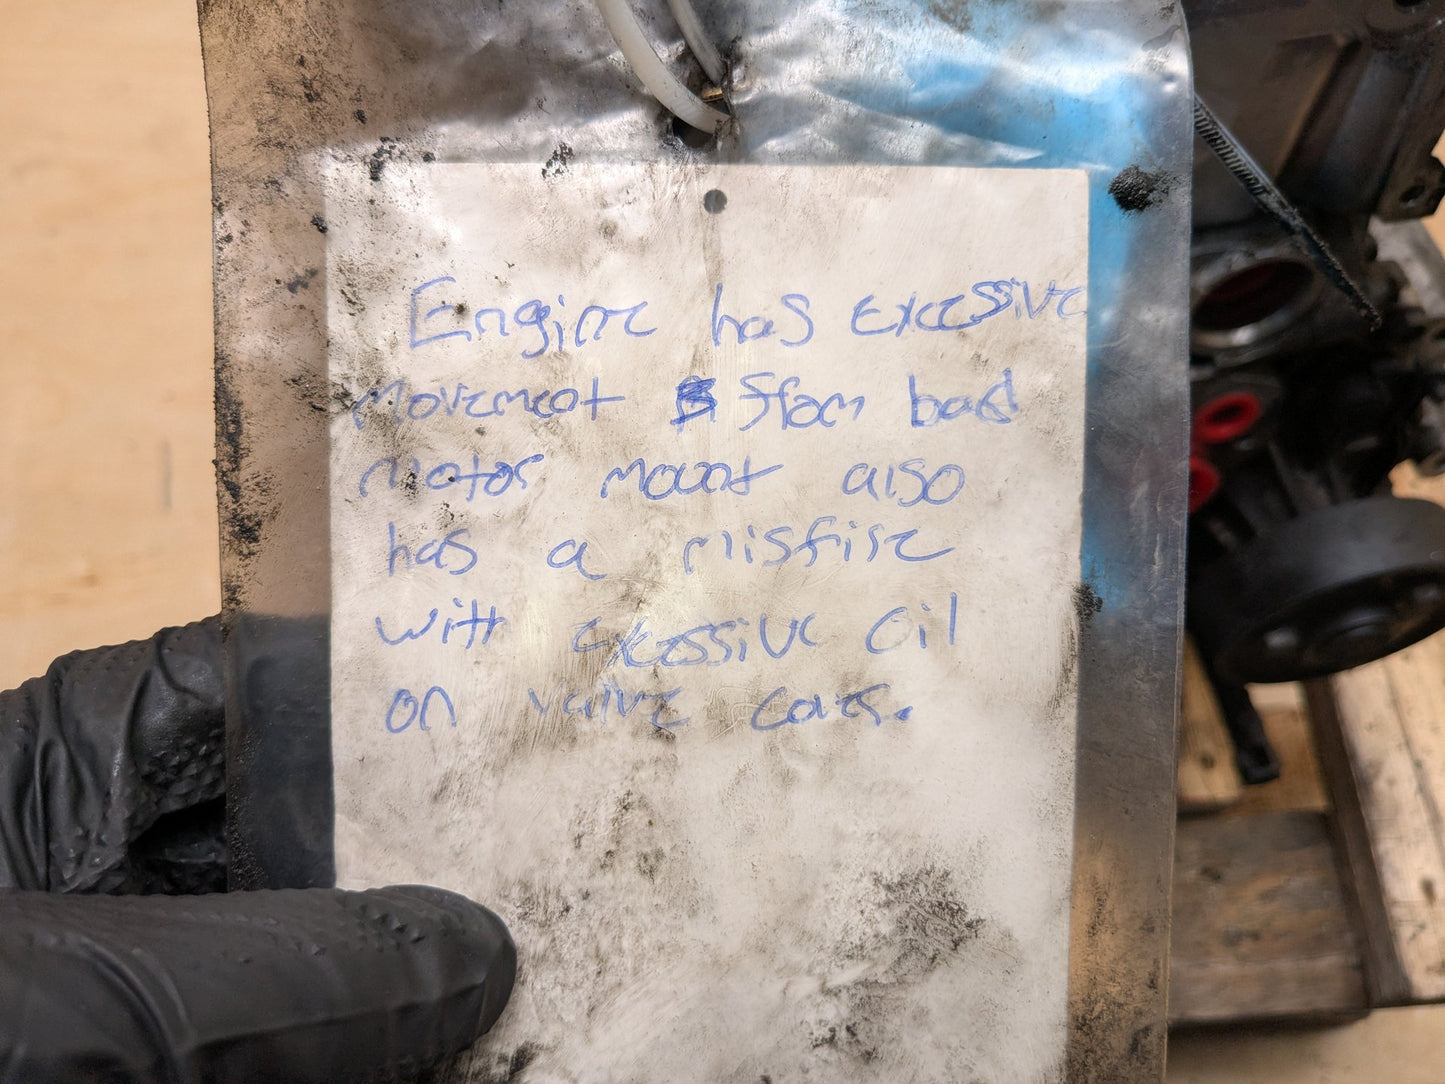 Engine has excessive
movement from bad
motor mount also
has a misfire
with excessive oil
on valve cover.